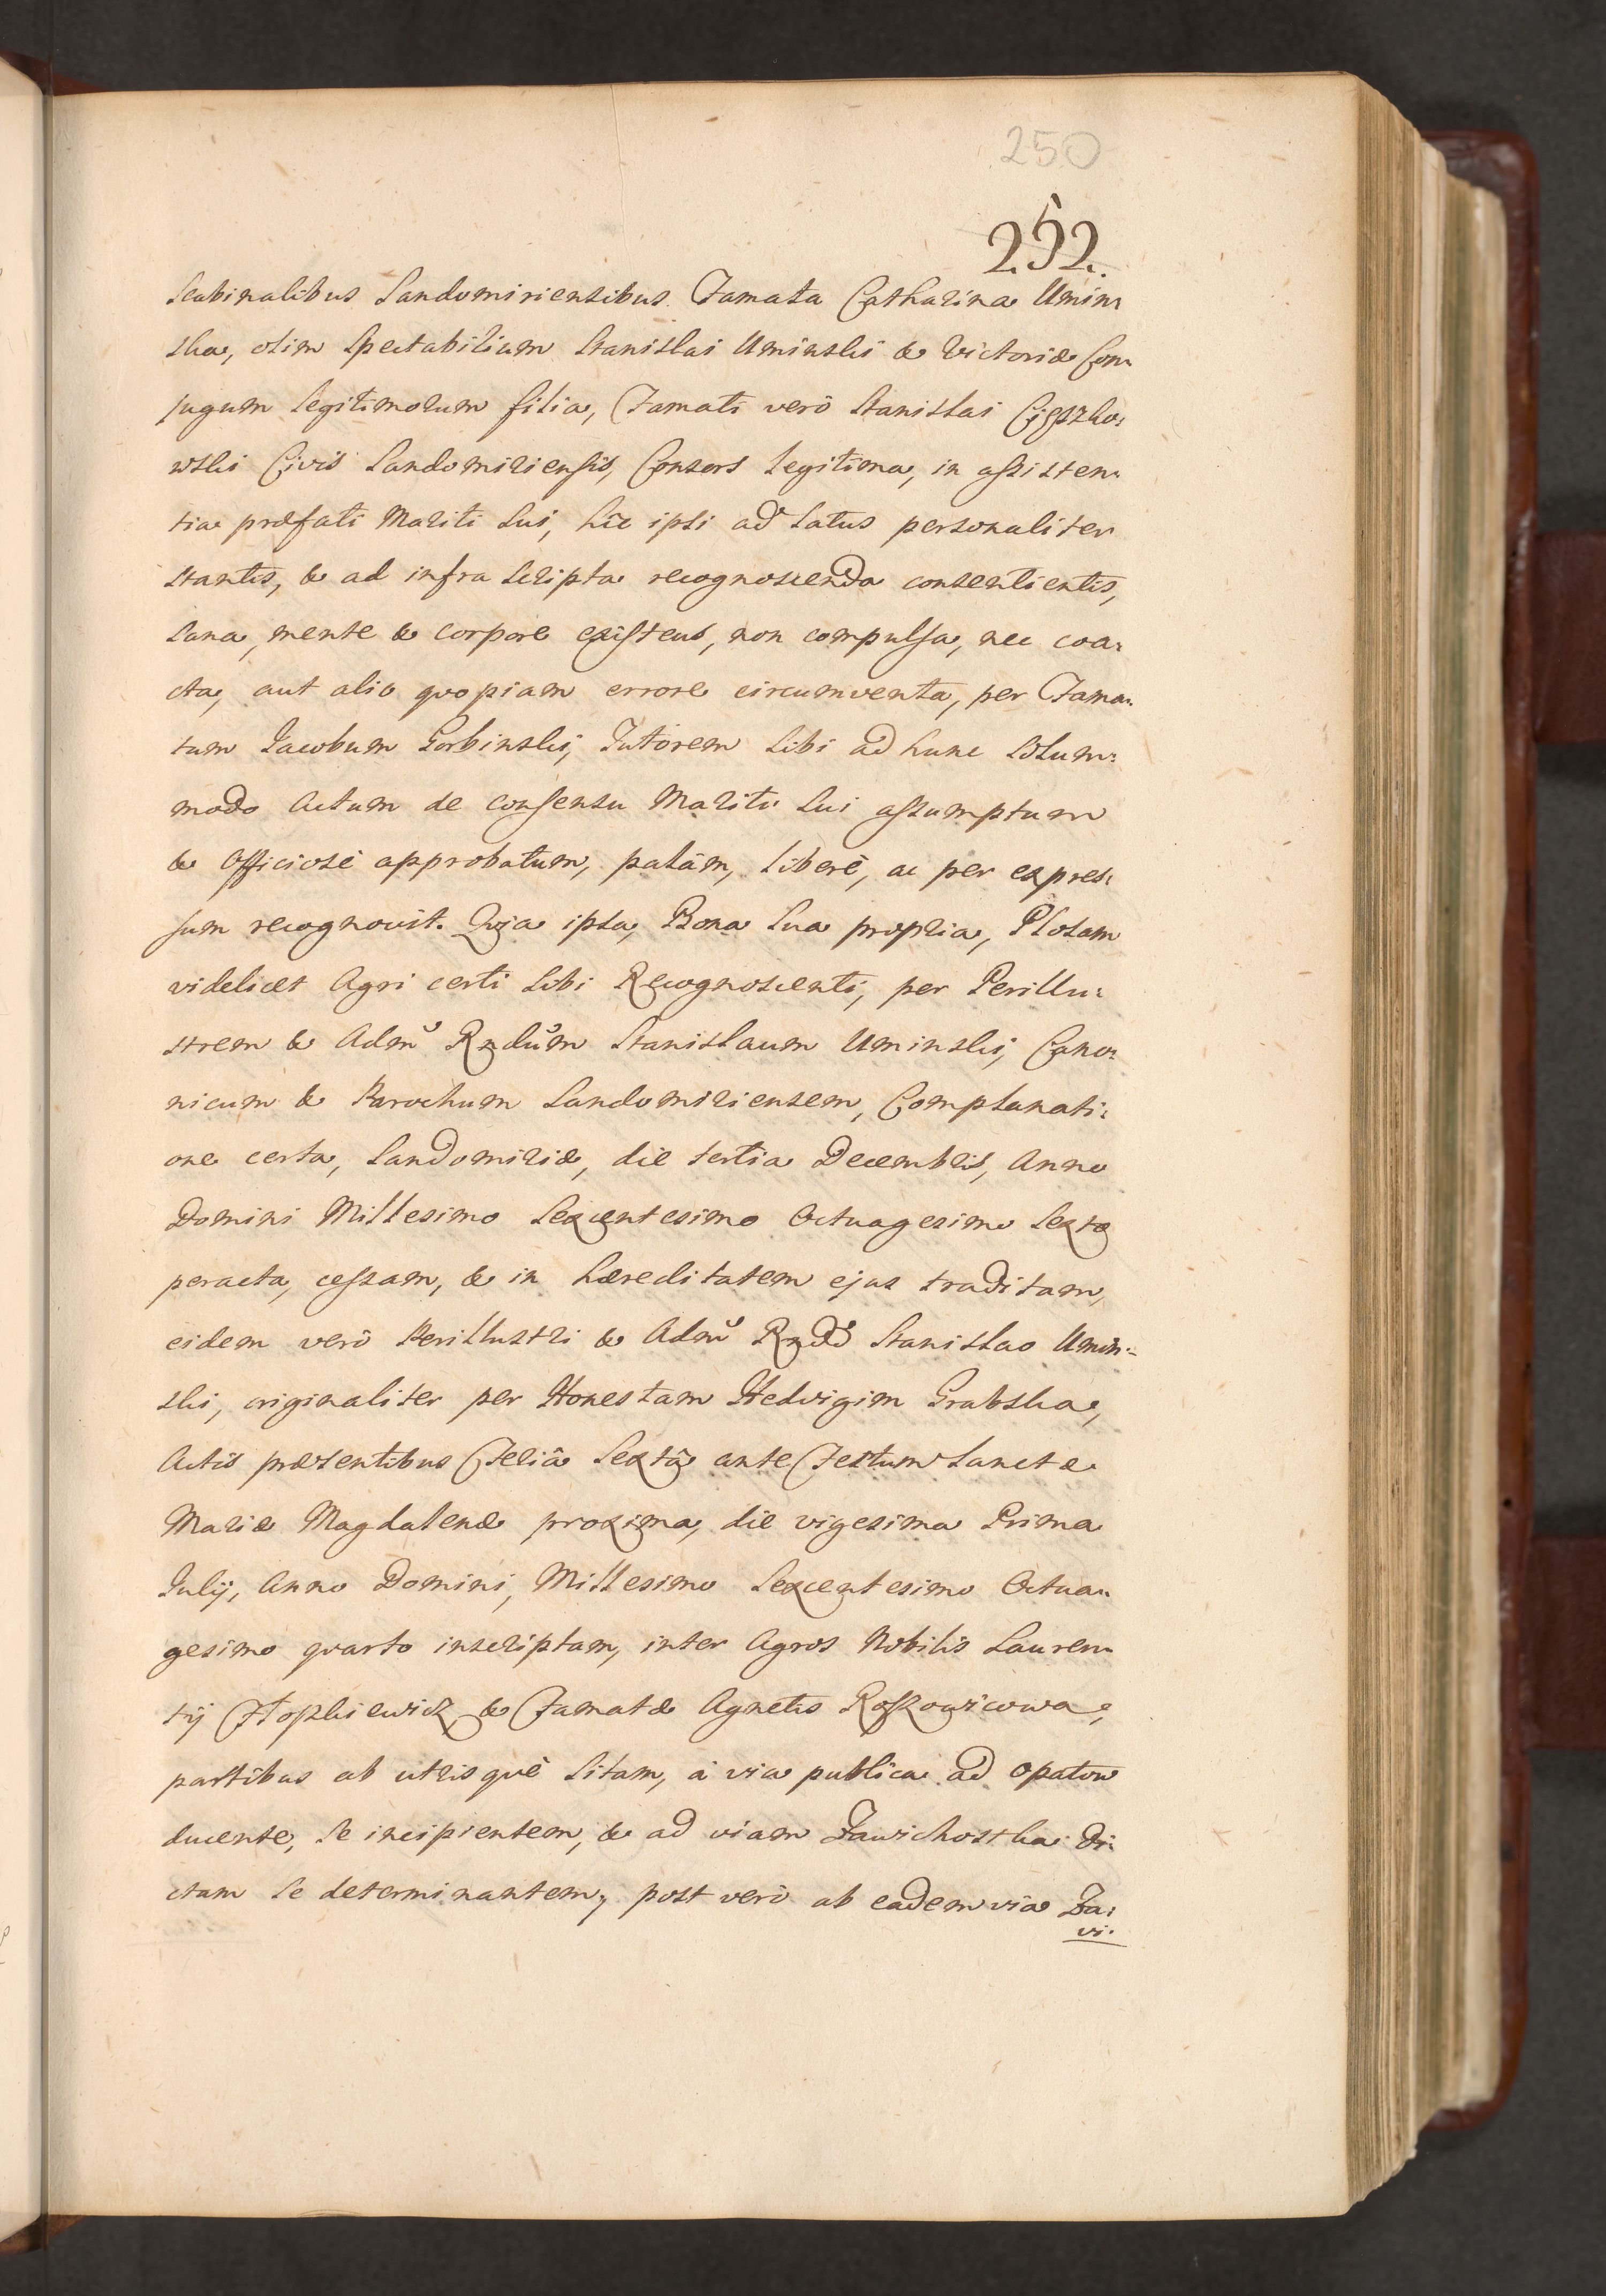 250
252.
Scabinalibus Sandomiriensibus Famata Catharina Umin:
ska, olim Spectabilium Stanislai Uminski & Victoriæ Con:
jugum legitimorum filia, Famati verò Stanislai Cięszko:
wski Civis Sandomiriensis, Consors legitima, in assisten:
tia præfati Mariti sui, hîc ipsi ad latus personaliter
stantis, & ad infra scripta recognoscenda consentientis,
sana, mente & corpore existens, non compulsa, nec coa:
cta, aut alio quopiam errore circumventa, per Fama:
tum Jacobum Gorbinski, Tutorem sibi ad hunc solum:
modo Actum de consensu Mariti sui assumptum
& officiosè approbatum, palàm, liberè, ac per expres:
sum recognovit. Quia ipsa, Bona sua propria, Plosam
videlicet Agri certi sibi Recognoscenti, per Perillu:
strem & Admũ Rndũm Stanislaum Uminski, Cano:
nicum & Parochum Sandomiriensem, Complanati:
one certa, Sandomiriæ, die tertia Decembris, Anno
Domini Millesimo Sexcentesimo Octuagesimo Sexto
peracta, cessam, & in hæreditatem ejus traditam,
eidem verò Perillustri & Admũ Rndõ Stanislao Umin:
ski, originaliter per Honestam Hedvigim Grabska,
Actis præsentibus Feriâ Sextâ ante Festum Sanctæ
Mariæ Magdalenæ proxima, die vigesima Prima
Julij, Anno Domini, Millesimo Sexcentesimo Octua:
gesimo quarto inscriptam, inter Agros Nobilis Lauren:
tij Floszkiewicz & Famatæ Agnetis Roszowicowa,
partibus ab utrisquè sitam, à via publica ad Opatow
ducente, se incipientem, & ad viam Zawichostka di:
ctam se determinantem, post verò ab eadem via Za:
vi.